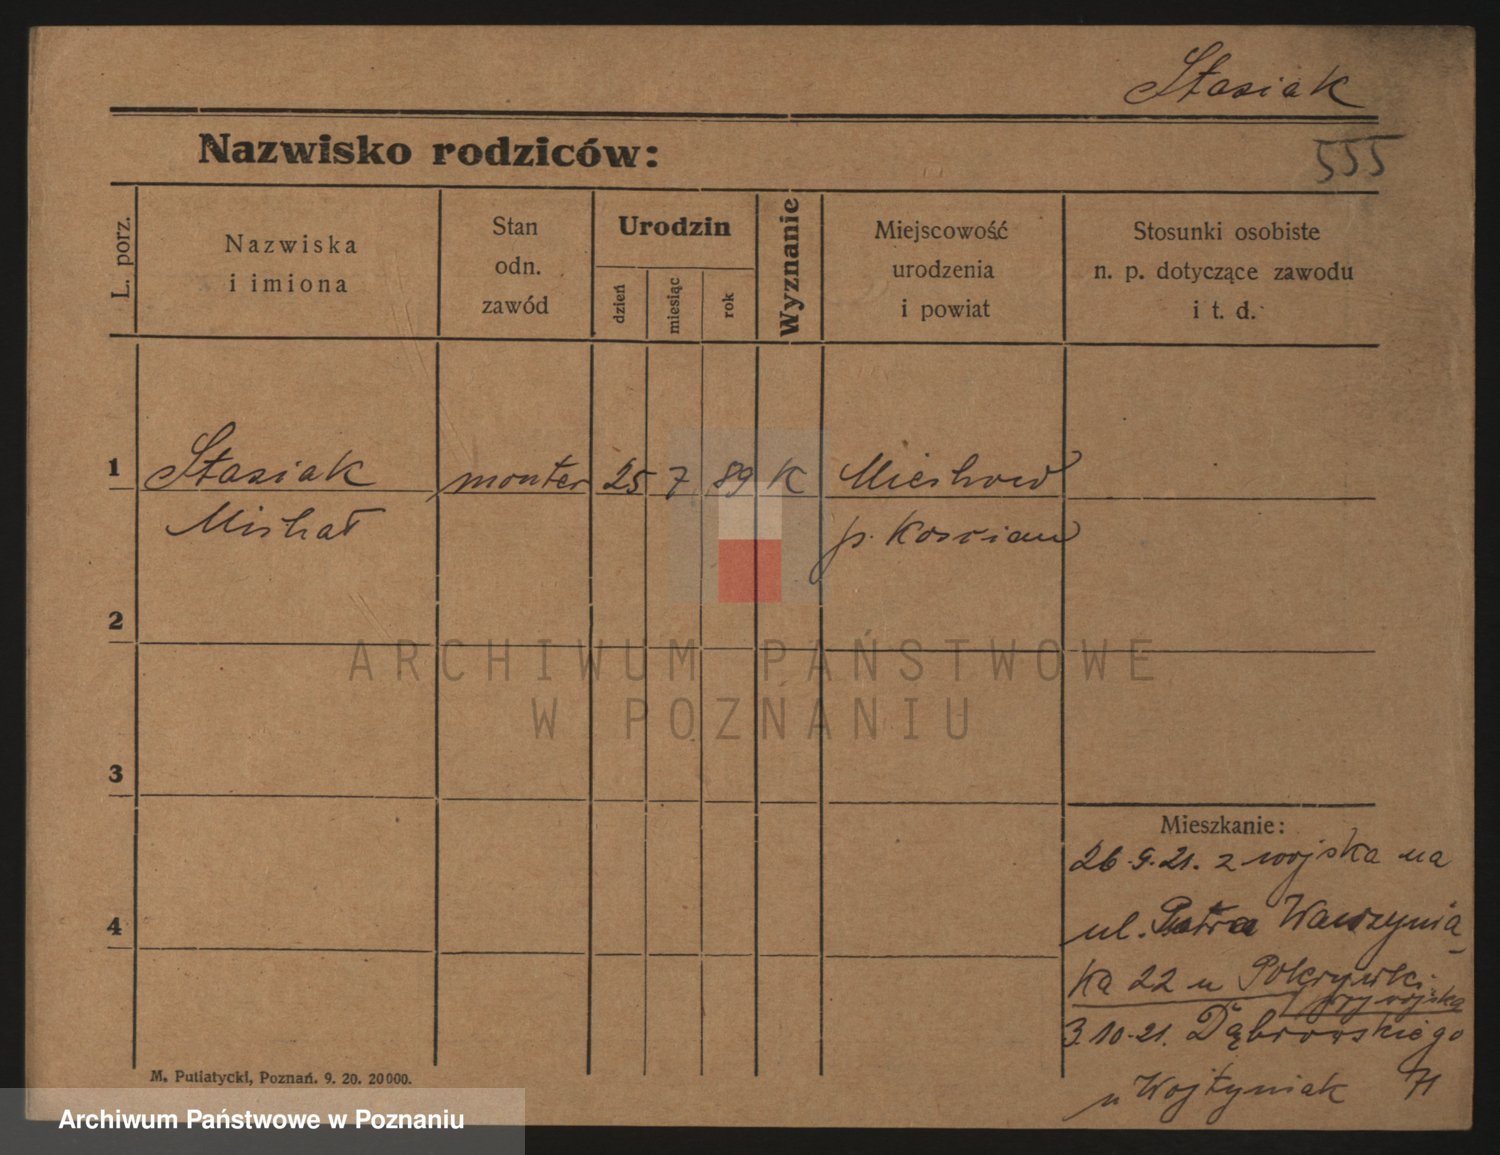 Stasiak
Nazwisko rodziców:
555
L. porz.
Nazwiska
i imiona
Stan
odn.
zawód
Urodzin
dzień
miesiąc
rok
Wyznanie
Miejscowość
urodzenia
i powiat
Stosunki osobiste
n. p. dotyczące zawodu
i t. d.
1 Stasiak monter 25 7 89 K
Michał p. Koscian
2
ARCHIWUM PAŃSTWOWE
W POZNANIU
3
4
Mieszkanie:
26.9.21. z wojska na
ul. Piotra Wawrzynia-
ka 22 u Pokrywki
3.10.21. Dąbrowskiego
u Wojtyniak 71
M. Putiatycki, Poznań. 9. 20. 20000.
Archiwum Państwowe w Poznaniu